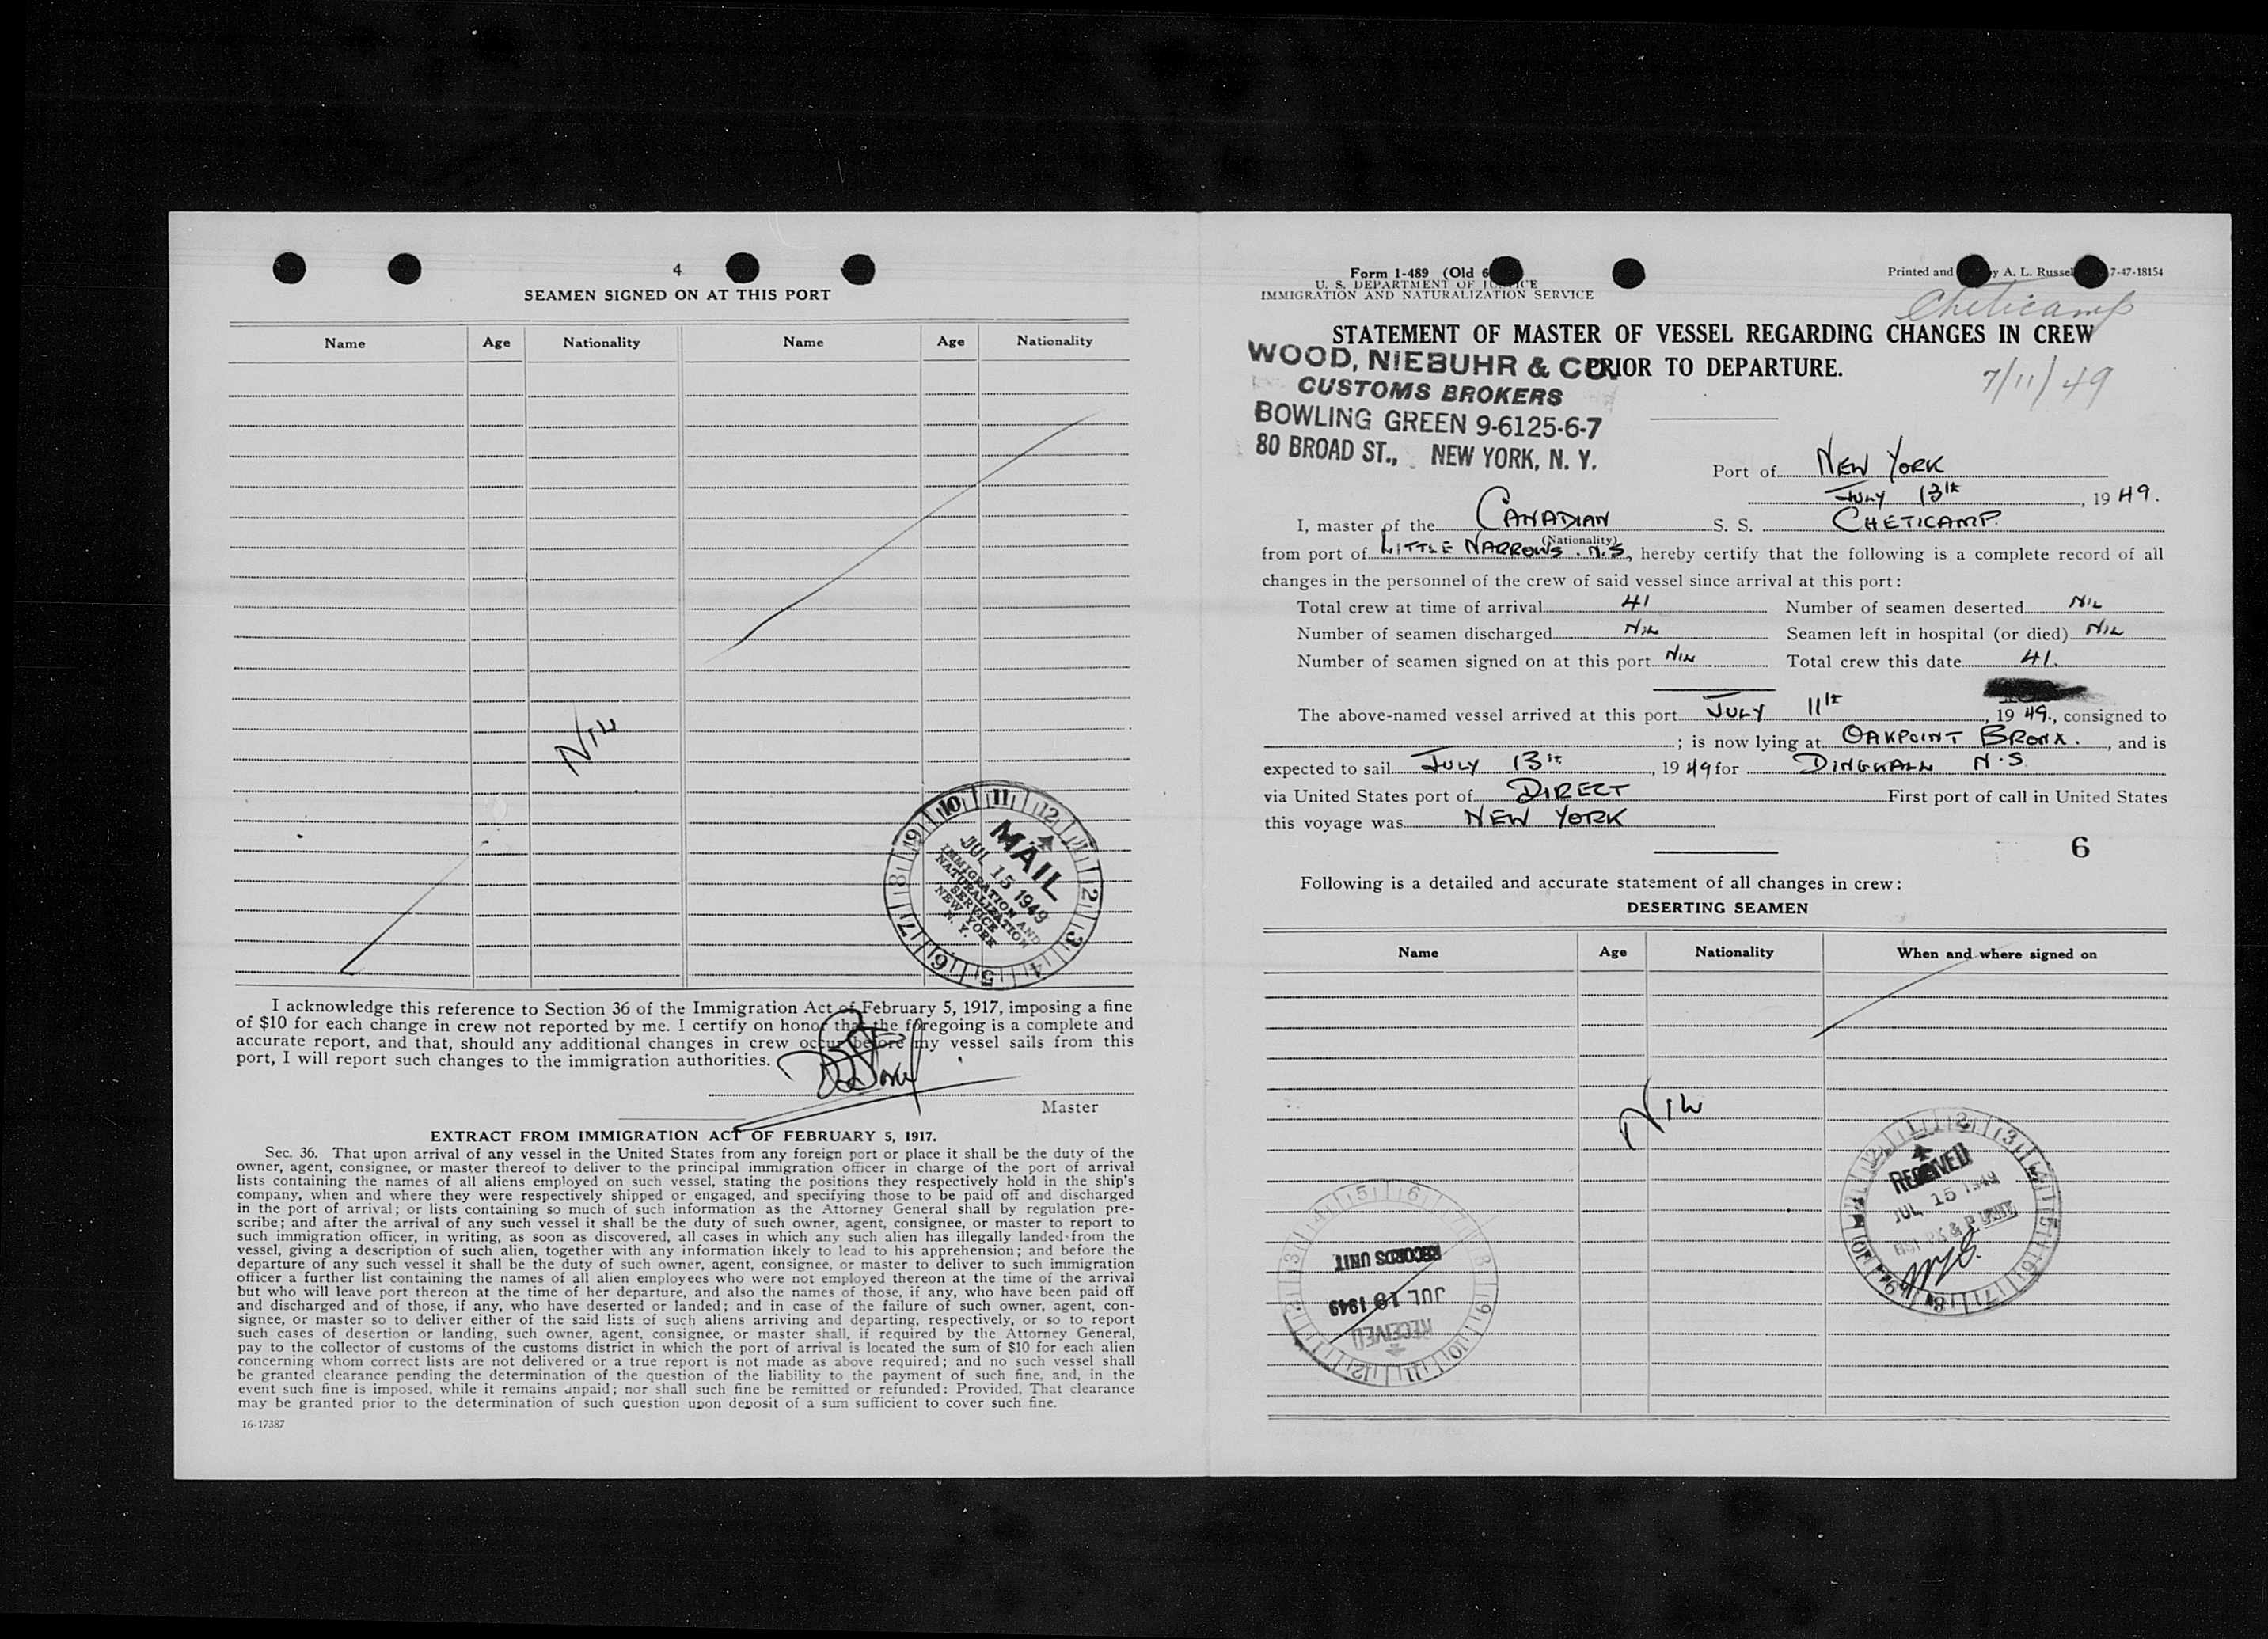 4
SEAMEN SIGNED ON AT THIS PORT
Name Age Nationality Name Age Nationality
NIL
10 11 12 1 2 3 4 5 6 7 8 9
MAIL
JUL 15 1949
IMMIGRATION AND
NATURALIZATION
SERVICE
NEW YORK
N. Y.
I acknowledge this reference to Section 36 of the Immigration Act of February 5, 1917, imposing a fine
of $10 for each change in crew not reported by me. I certify on honor that the foregoing is a complete and
accurate report, and that, should any additional changes in crew occur before my vessel sails from this
port, I will report such changes to the immigration authorities.
Master
EXTRACT FROM IMMIGRATION ACT OF FEBRUARY 5, 1917.
Sec. 36. That upon arrival of any vessel in the United States from any foreign port or place it shall be the duty of the
owner, agent, consignee, or master thereof to deliver to the principal immigration officer in charge of the port of arrival
lists containing the names of all aliens employed on such vessel, stating the positions they respectively hold in the ship's
company, when and where they were respectively shipped or engaged, and specifying those to be paid off and discharged
in the port of arrival; or lists containing so much of such information as the Attorney General shall by regulation pre-
scribe; and after the arrival of any such vessel it shall be the duty of such owner, agent, consignee, or master to report to
such immigration officer, in writing, as soon as discovered, all cases in which any such alien has illegally landed from the
vessel, giving a description of such alien, together with any information likely to lead to his apprehension; and before the
departure of any such vessel it shall be the duty of such owner, agent, consignee, or master to deliver to such immigration
officer a further list containing the names of all alien employees who were not employed thereon at the time of the arrival
but who will leave port thereon at the time of her departure, and also the names of those, if any, who have been paid off
and discharged and of those, if any, who have deserted or landed; and in case of the failure of such owner, agent, con-
signee, or master so to deliver either of the said lists of such aliens arriving and departing, respectively, or so to report
such cases of desertion or landing, such owner, agent, consignee, or master shall, if required by the Attorney General,
pay to the collector of customs of the customs district in which the port of arrival is located the sum of $10 for each alien
concerning whom correct lists are not delivered or a true report is not made as above required; and no such vessel shall
be granted clearance pending the determination of the question of the liability to the payment of such fine, and, in the
event such fine is imposed, while it remains unpaid; nor shall such fine be remitted or refunded: Provided, That clearance
may be granted prior to the determination of such question upon deposit of a sum sufficient to cover such fine.
16-17387
Form I-489 (Old 6
U. S. DEPARTMENT OF JUSTICE
IMMIGRATION AND NATURALIZATION SERVICE
Printed and y A. L. Russel 7-47-18154
Cheticamp
STATEMENT OF MASTER OF VESSEL REGARDING CHANGES IN CREW
PRIOR TO DEPARTURE.
7/11/49
WOOD, NIEBUHR & CO.
CUSTOMS BROKERS
BOWLING GREEN 9-6125-6-7
80 BROAD ST., NEW YORK, N. Y.
Port of NEW YORK
JULY 13th, 1949.
I, master of the CANADIAN S. S. CHETICAMP
(Nationality)
from port of LITTLE NARROWS. N.S, hereby certify that the following is a complete record of all
changes in the personnel of the crew of said vessel since arrival at this port:
Total crew at time of arrival 41 Number of seamen deserted NIL
Number of seamen discharged NIL Seamen left in hospital (or died) NIL
Number of seamen signed on at this port NIL Total crew this date 41.
The above-named vessel arrived at this port JULY 11th, 1949., consigned to
; is now lying at OAKPOINT BRONX., and is
expected to sail JULY 13th, 1949 for DINGWALL N.S.
via United States port of DIRECT First port of call in United States
this voyage was NEW YORK
6
Following is a detailed and accurate statement of all changes in crew:
DESERTING SEAMEN
Name Age Nationality When and where signed on
NIL
RECEIVED
JUL 15 1949
RECORDS UNIT
JUL 19 1949
RECEIVED